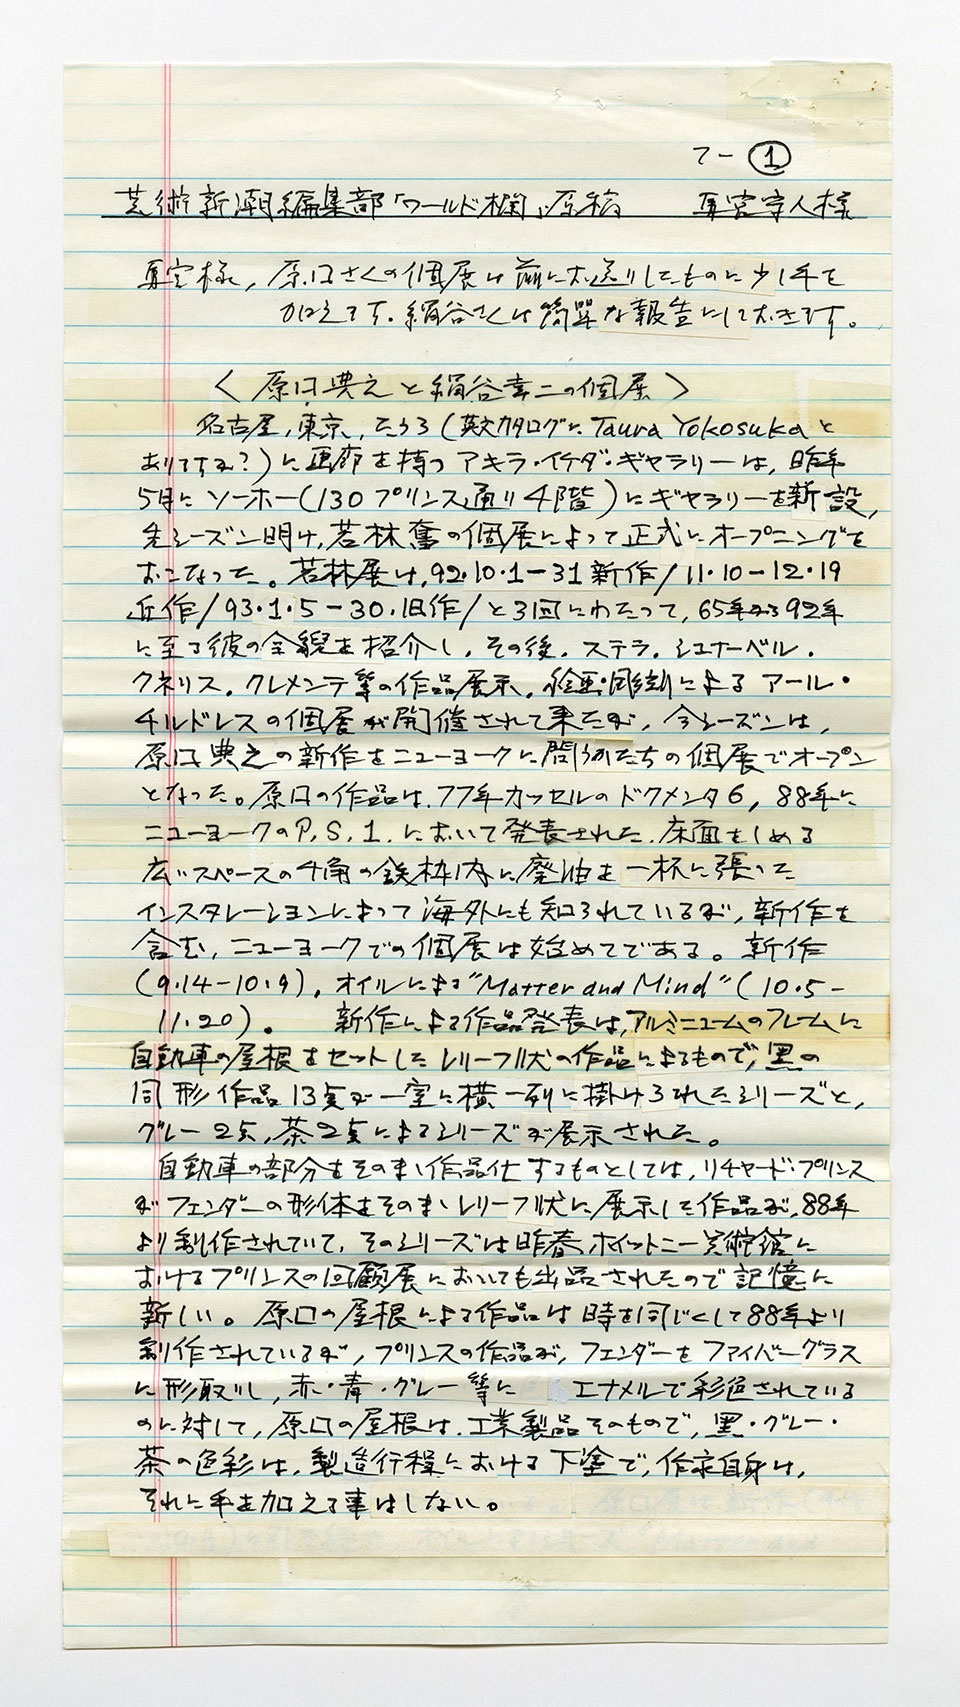 7-①
芸術新潮編集部「ワールド欄」原稿 真宮守人様
真宮様、原口さんの個展は前にお送りしたものに少し手を
加えます。絹谷さんは簡単な報告にしておきます。
〈原口典之と絹谷幸二の個展〉
名古屋、東京、たうろ(英文カタログに Taura Yokosukaと
ありますね?)に画廊を持つアキラ・イケダ・ギャラリーは、昨年
5月にソーホー(130プリンス通り4階)にギャラリーを新設、
先シーズン明け、若林奮の個展によって正式にオープニングを
おこなった。若林展は、92・10・1-31新作/11・10-12・19
近作/93・1・5-30・旧作/と3回にわたって、65年から92年
に至る彼の全貌を紹介し、その後、ステラ、シュナーベル、
クネリス、クレメンテ等の作品展示、絵画・彫刻によるアール・
チルドレスの個展が開催されて来たが、今シーズンは、
原口典之の新作をニューヨークに問うかたちの個展でオープン
となった。原口の作品は、77年カッセルのドクメンタ6、88年に
ニューヨークのP.S.1.において発表された、床面をしめる
広いスペースの4角の鉄枠内に廃油を一杯に張った
インスタレーションによって海外にも知られているが、新作を
含む、ニューヨークでの個展は始めてである。新作
(9・14-10・9)、オイルによる"Matter and Mind"(10・5-
11・20)。 新作による作品発表は、アルミニュームのフレームに
自動車の屋根をセットしたレリーフ状の作品によるもので、黒の
同形作品13点が一室に横一列に掛けられたシリーズと、
グレー2点、茶2点によるシリーズが展示された。
自動車の部分をそのまい作品化するものとしては、リチャード・プリンス
がフェンダーの形体をそのまいレリーフ状に展示した作品が、88年
より制作されていて、そのシリーズは昨春、ホイットニー美術館に
おけるプリンスの回顧展においても出品されたので記憶に
新しい。原口の屋根による作品は時を同じくして88年より
制作されているが、プリンスの作品が、フェンダーをファイバーグラス
に形取りし、赤・青・グレー等に エナメルで彩色されている
のに対して、原口の屋根は、工業製品そのもので、黒・グレー・
茶の色彩は、製造行程における下塗で、作家自身は、
それに手を加える事はしない。